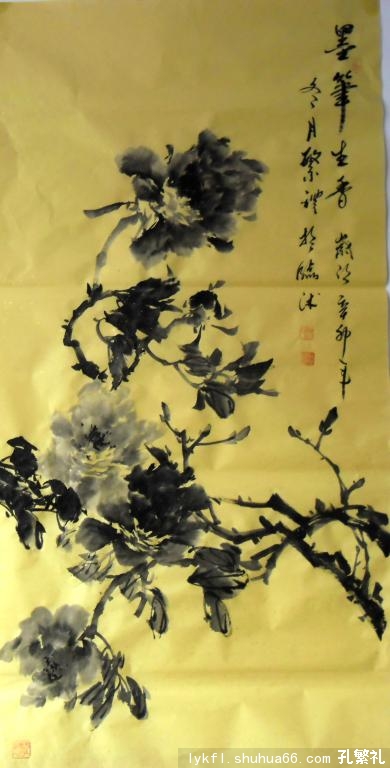 墨筆生香 歲次辛卯年
冬月繁禮於臨沭
lykfl.shuhua66.com 孔繁礼